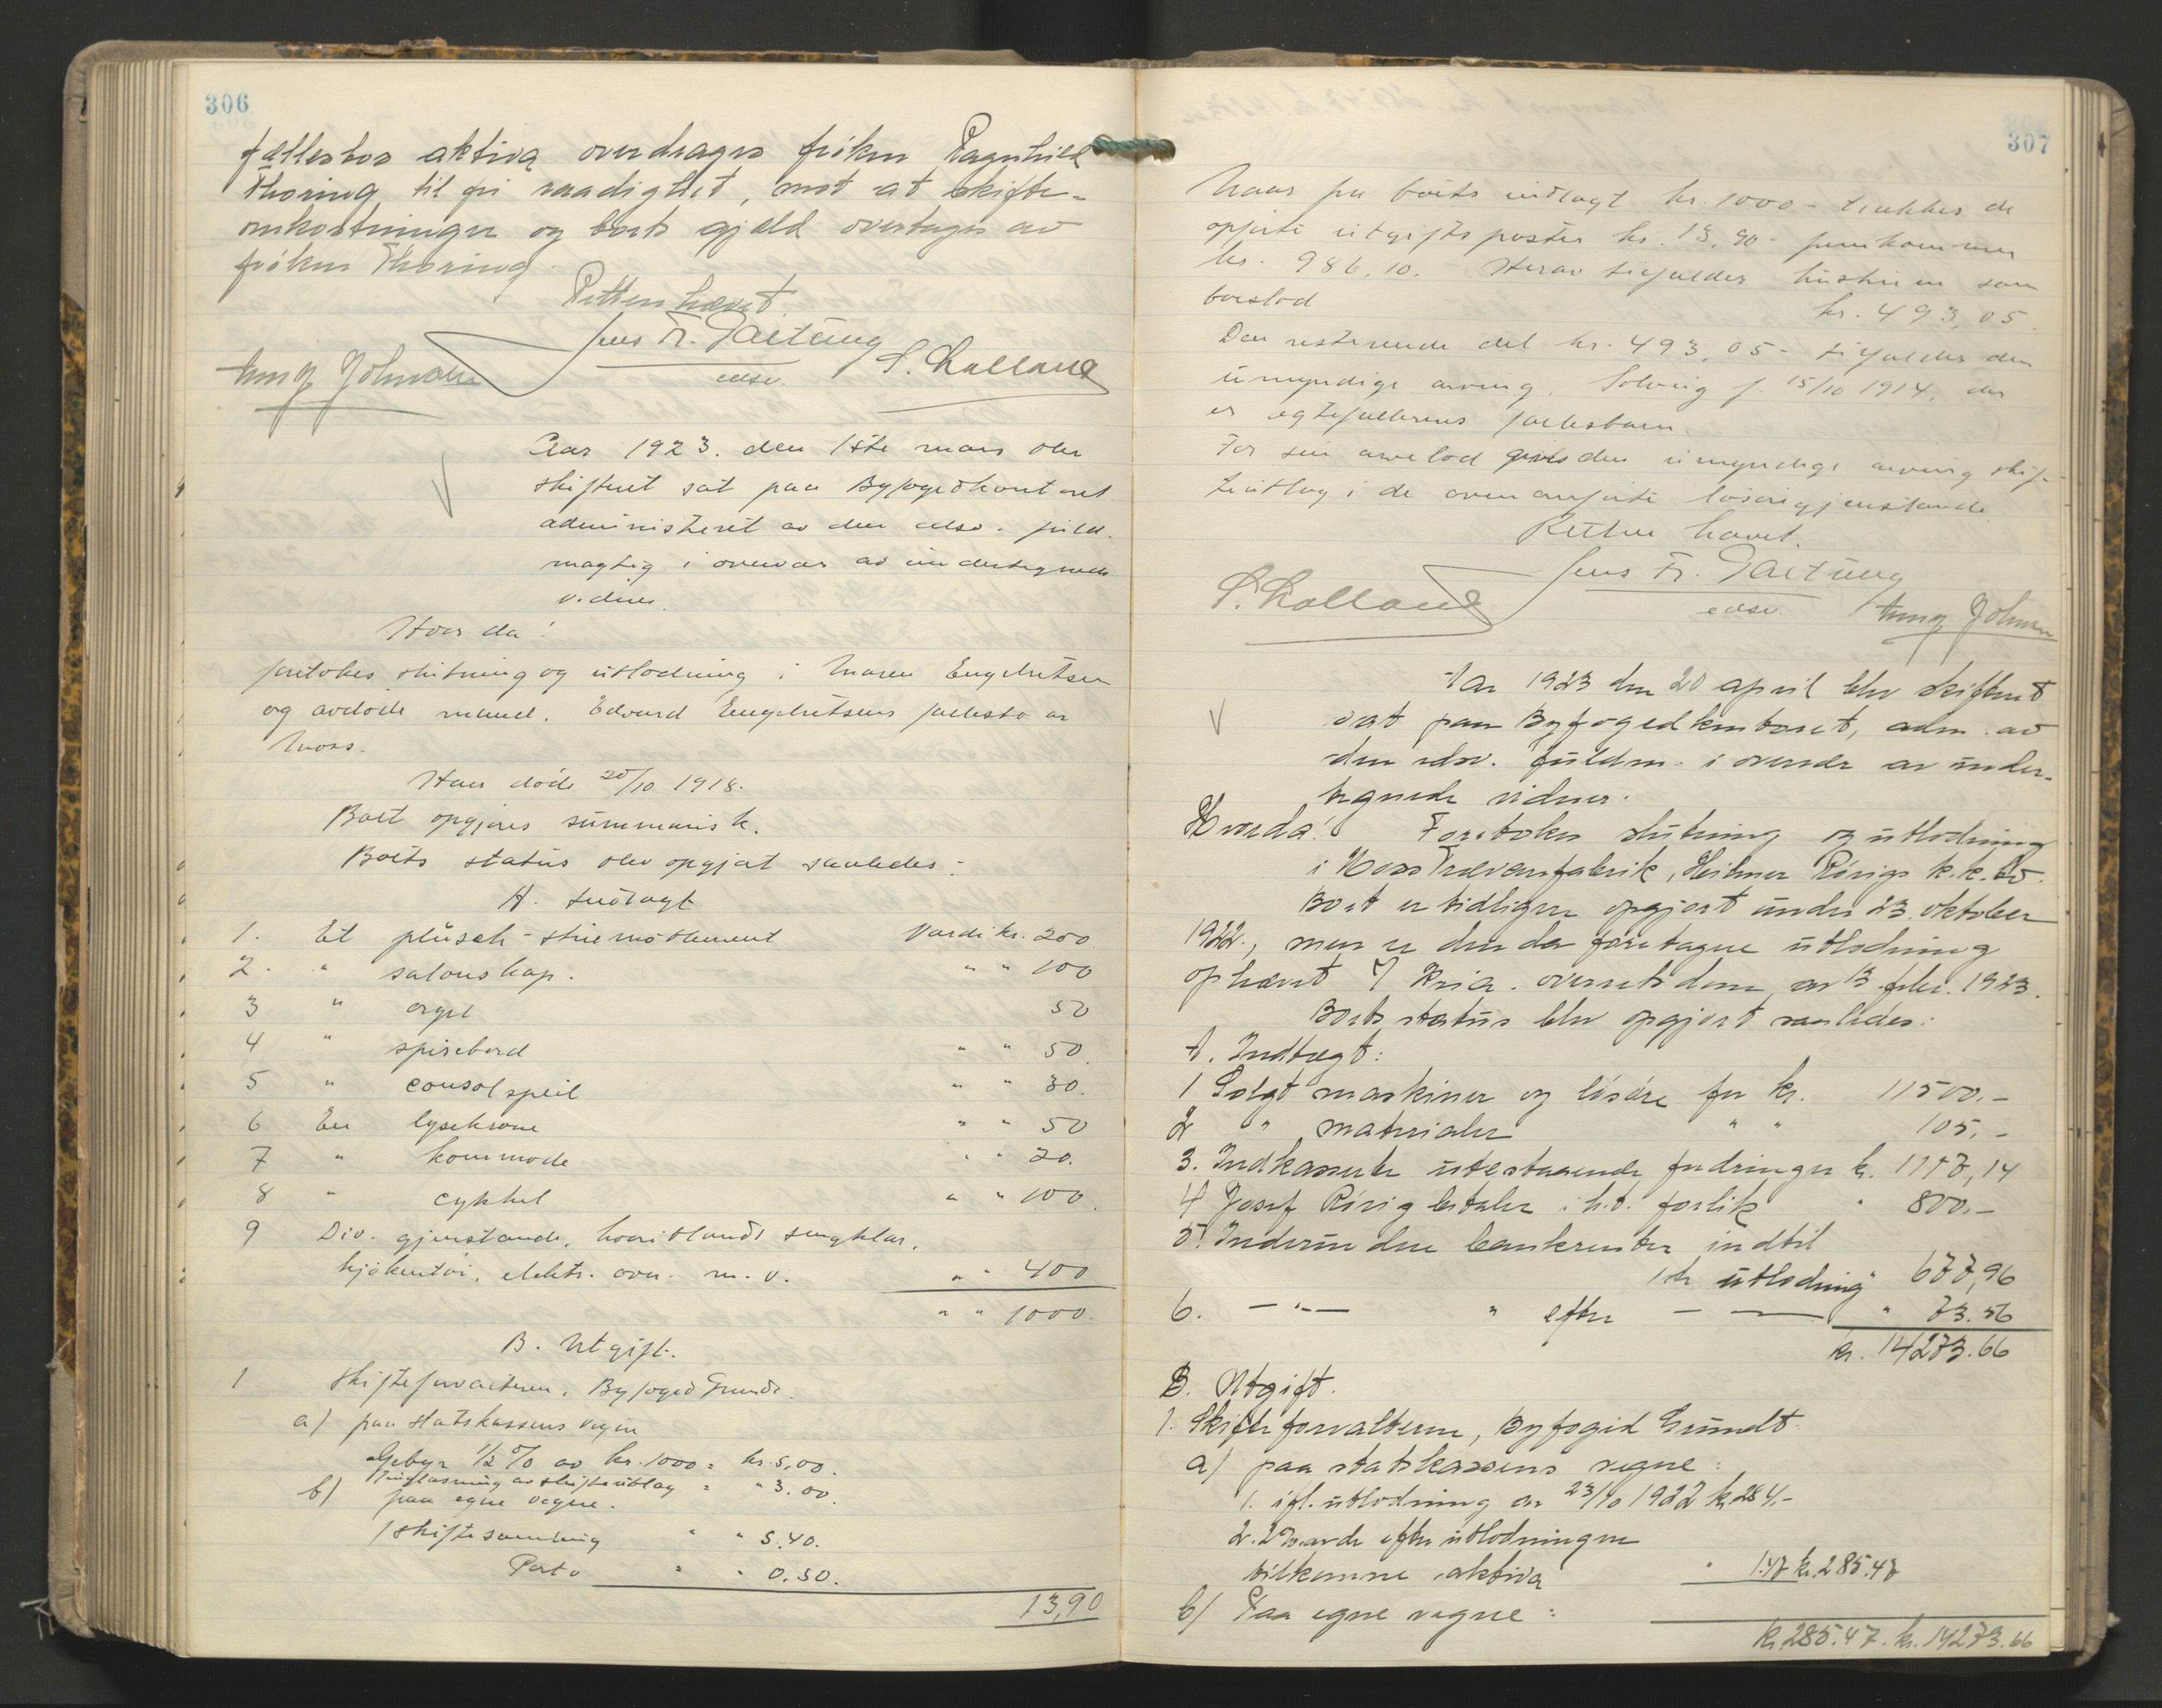 306
fællesbos aktiva overdrages frøken Ragnhild
Thoring til fri raadighet, mot at skifte-
omkostninger og boets gjæld overtages av
frøken Thoring.
Retten hævet.
Jens Fr. Galtung
edsv.
S. Lolland
Aar 1923. den 1ste mars blev
skifteret sat paa Byfogedkontoret
administreret av den edsv. fuld-
mægtig i overvær av undertegnede
vidner.
Hvor da!
foretokes slutning og utlodning i Maren Engebretsen
og avdøde mand. Edvard Engebretsens fællesbo av
Moss.
Han døde 20/10 1918.
Boet opgjøres summarisk.
Boets status blev opgjort saaledes:
A. Indtægt
1. Et plüsch-stuemøblement Værdi kr. 200.
2. " salonskap. " " 100
3 " orgel 50
4 " spisebord " " 50.
5 " consolspeil " " 30.
6 En lysekrone " " 50
7 " kommode " " 20.
8 " cykkel " " 100.
9 Div. gjenstande, hvoriblandt sengklær,
kjøkentøi, elektr. ovn m. v. " " 400
" " 1000.
B. Utgift.
1 Skifteforvalteren, Byfoged Grundt.
a) paa statskassens vegne
Gebyr 1/2 % av kr. 1000 = kr. 5,00.
Tinglæsning av skifteutlæg = " 3.00.
b) paa egne vegne.
1 skiftesamling " " 5.40.
Porto " " 0.50.
13,90
307
Naar fra boets indtægt kr. 1000 - trækkes de
opførte utgiftsposter kr. 13,90 - fremkommer
kr. 986,10. Herav tilfalder hustruen som
boeslod kr. 493,05.
Den resterende del kr. 493,05 - tilfalder den
umyndige arving, Solveig f. 15/10 1914, der
er egtefællernes fællesbarn.
For sin arvelod gives den umyndige arving skif-
teutlæg i de ovenanførte løsøregjenstande.
Retten hævet.
Jens Fr. Galtung
edsv.
S. Lolland
Aar 1923 den 20 april blev skifteret
sat paa Byfogedkontoret, adm. av
den edsv. fuldm. i overvær av under-
tegnede vidner.
Hvorda! Foretokes slutning og utlodning
i Moss Trævarefabrik, Hilmar Rørigs k.k. bo.
Boet er tidligere opgjort under 23. oktober
1922., men er den da foretagne utlodning
ophævet v/ Kria. overretsdom av 13 febr. 1923.
Boets status blev opgjort saaledes:
A. Indtægt:
1 Solgt maskiner og løsøre for kr. 11500.-
2 " materialer " " 105.-
3. Indkasserte utestaaende fordringer kr. 1117,14
4 Josef Rørig betaler i h.t. forlik " 800.-
5. Indvundne bankrenter indtil
1ste utlodning " 677,96
6. - " - " efter - - " 73.56
kr. 14273.66
B. Utgift.
1. Skifteforvalteren, Byfoged Grundt.
a) paa statskassens vegne:
1. ifl. utlodning av 23/10 1922 kr. 284.-
2. 2% av de efter utlodningen
tilkomne aktiva " 1.47 kr. 285.47
b) Paa egne vegne:
kr. 285.47. kr. 14273.66